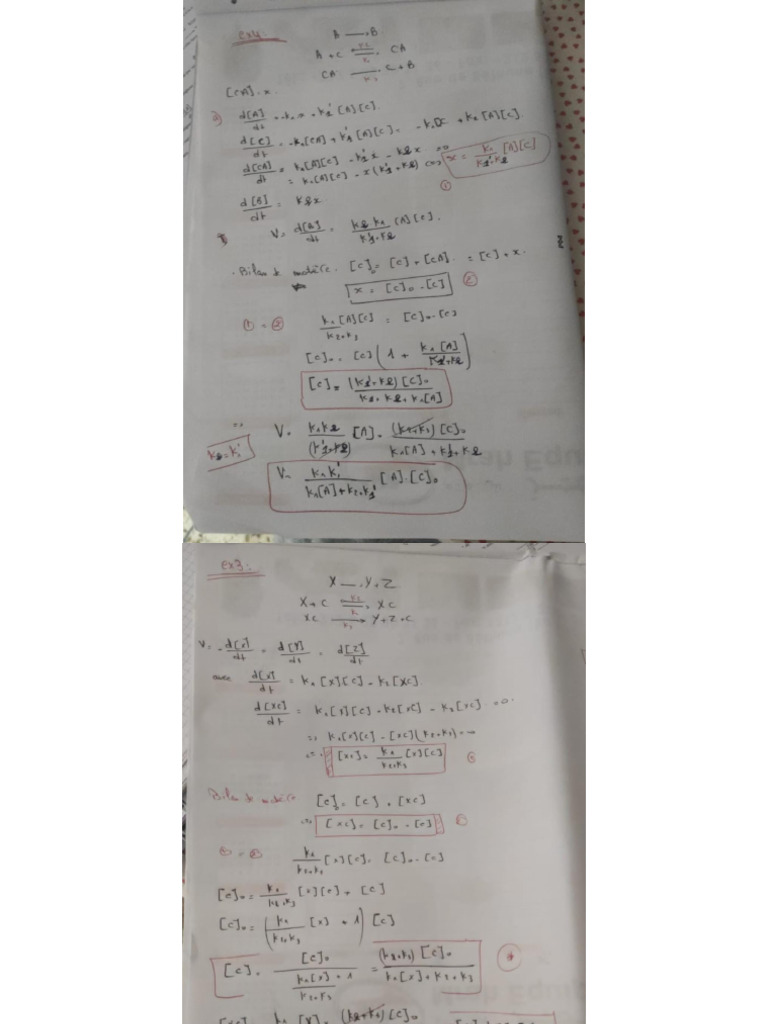 ex4.
A → B
A + C ⇌ CA
CA → C + B
[CA] = x
a) d[A]/dt = -k₁x + k₁' [A][C].
d[C]/dt = -k₁[CA] + k₁'[A][C] = -k₁x + k₁[A][C]
d[CA]/dt = k₁[A][C] - k₁'x - k₂x = 0
= k₁[A][C] - x(k₁'+k₂) ⇔ x = k₁/(k₁'+k₂) [A][C]
①
d[B]/dt = k₂x
V = d[B]/dt = k₂k₁/(k₁'+k₂) [A][C].
. Bilan de matière. [C]₀ = [C] + [CA]. = [C] + x.
x = [C]₀ - [C] ②
① = ② k₁[A][C]/(k₂+k₃) = [C]₀ - [C]
[C]₀ = [C] (1 + k₁[A]/(k₁'+k₂))
[C] = (k₁'+k₂)[C]₀/(k₁'+k₂+k₁[A])
⇒ V = k₁k₂/(k₁'+k₂) [A] . (k₂+k₃)[C]₀/(k₁[A]+k₁'+k₂)
k₂=k₁'
V = k₁k₁'/(k₁[A]+k₂+k₁') [A].[C]₀
ex3.
X → Y + Z
X + C ⇌ XC
XC → Y + Z + C
V = -d[X]/dt = d[Y]/dt = d[Z]/dt
avec d[X]/dt = k₁[X][C] - k₂[XC].
d[XC]/dt = k₁[X][C] - k₂[XC] - k₃[XC] = 0
⇒ k₁[X][C] - [XC](k₂+k₃) = 0
⇒ [XC] = k₁/(k₂+k₃) [X][C] ①
Bilan de matière [C]₀ = [C] + [XC]
⇒ [XC] = [C]₀ - [C] ②
① = ② k₁/(k₂+k₃) [X][C] = [C]₀ - [C]
[C]₀ = k₁/(k₂+k₃) [X][C] + [C]
[C]₀ = (k₁/(k₂+k₃) [X] + 1) [C]
[C] = [C]₀/(k₁[X]/(k₂+k₃) + 1) = (k₂+k₃)[C]₀/(k₁[X]+k₂+k₃) *